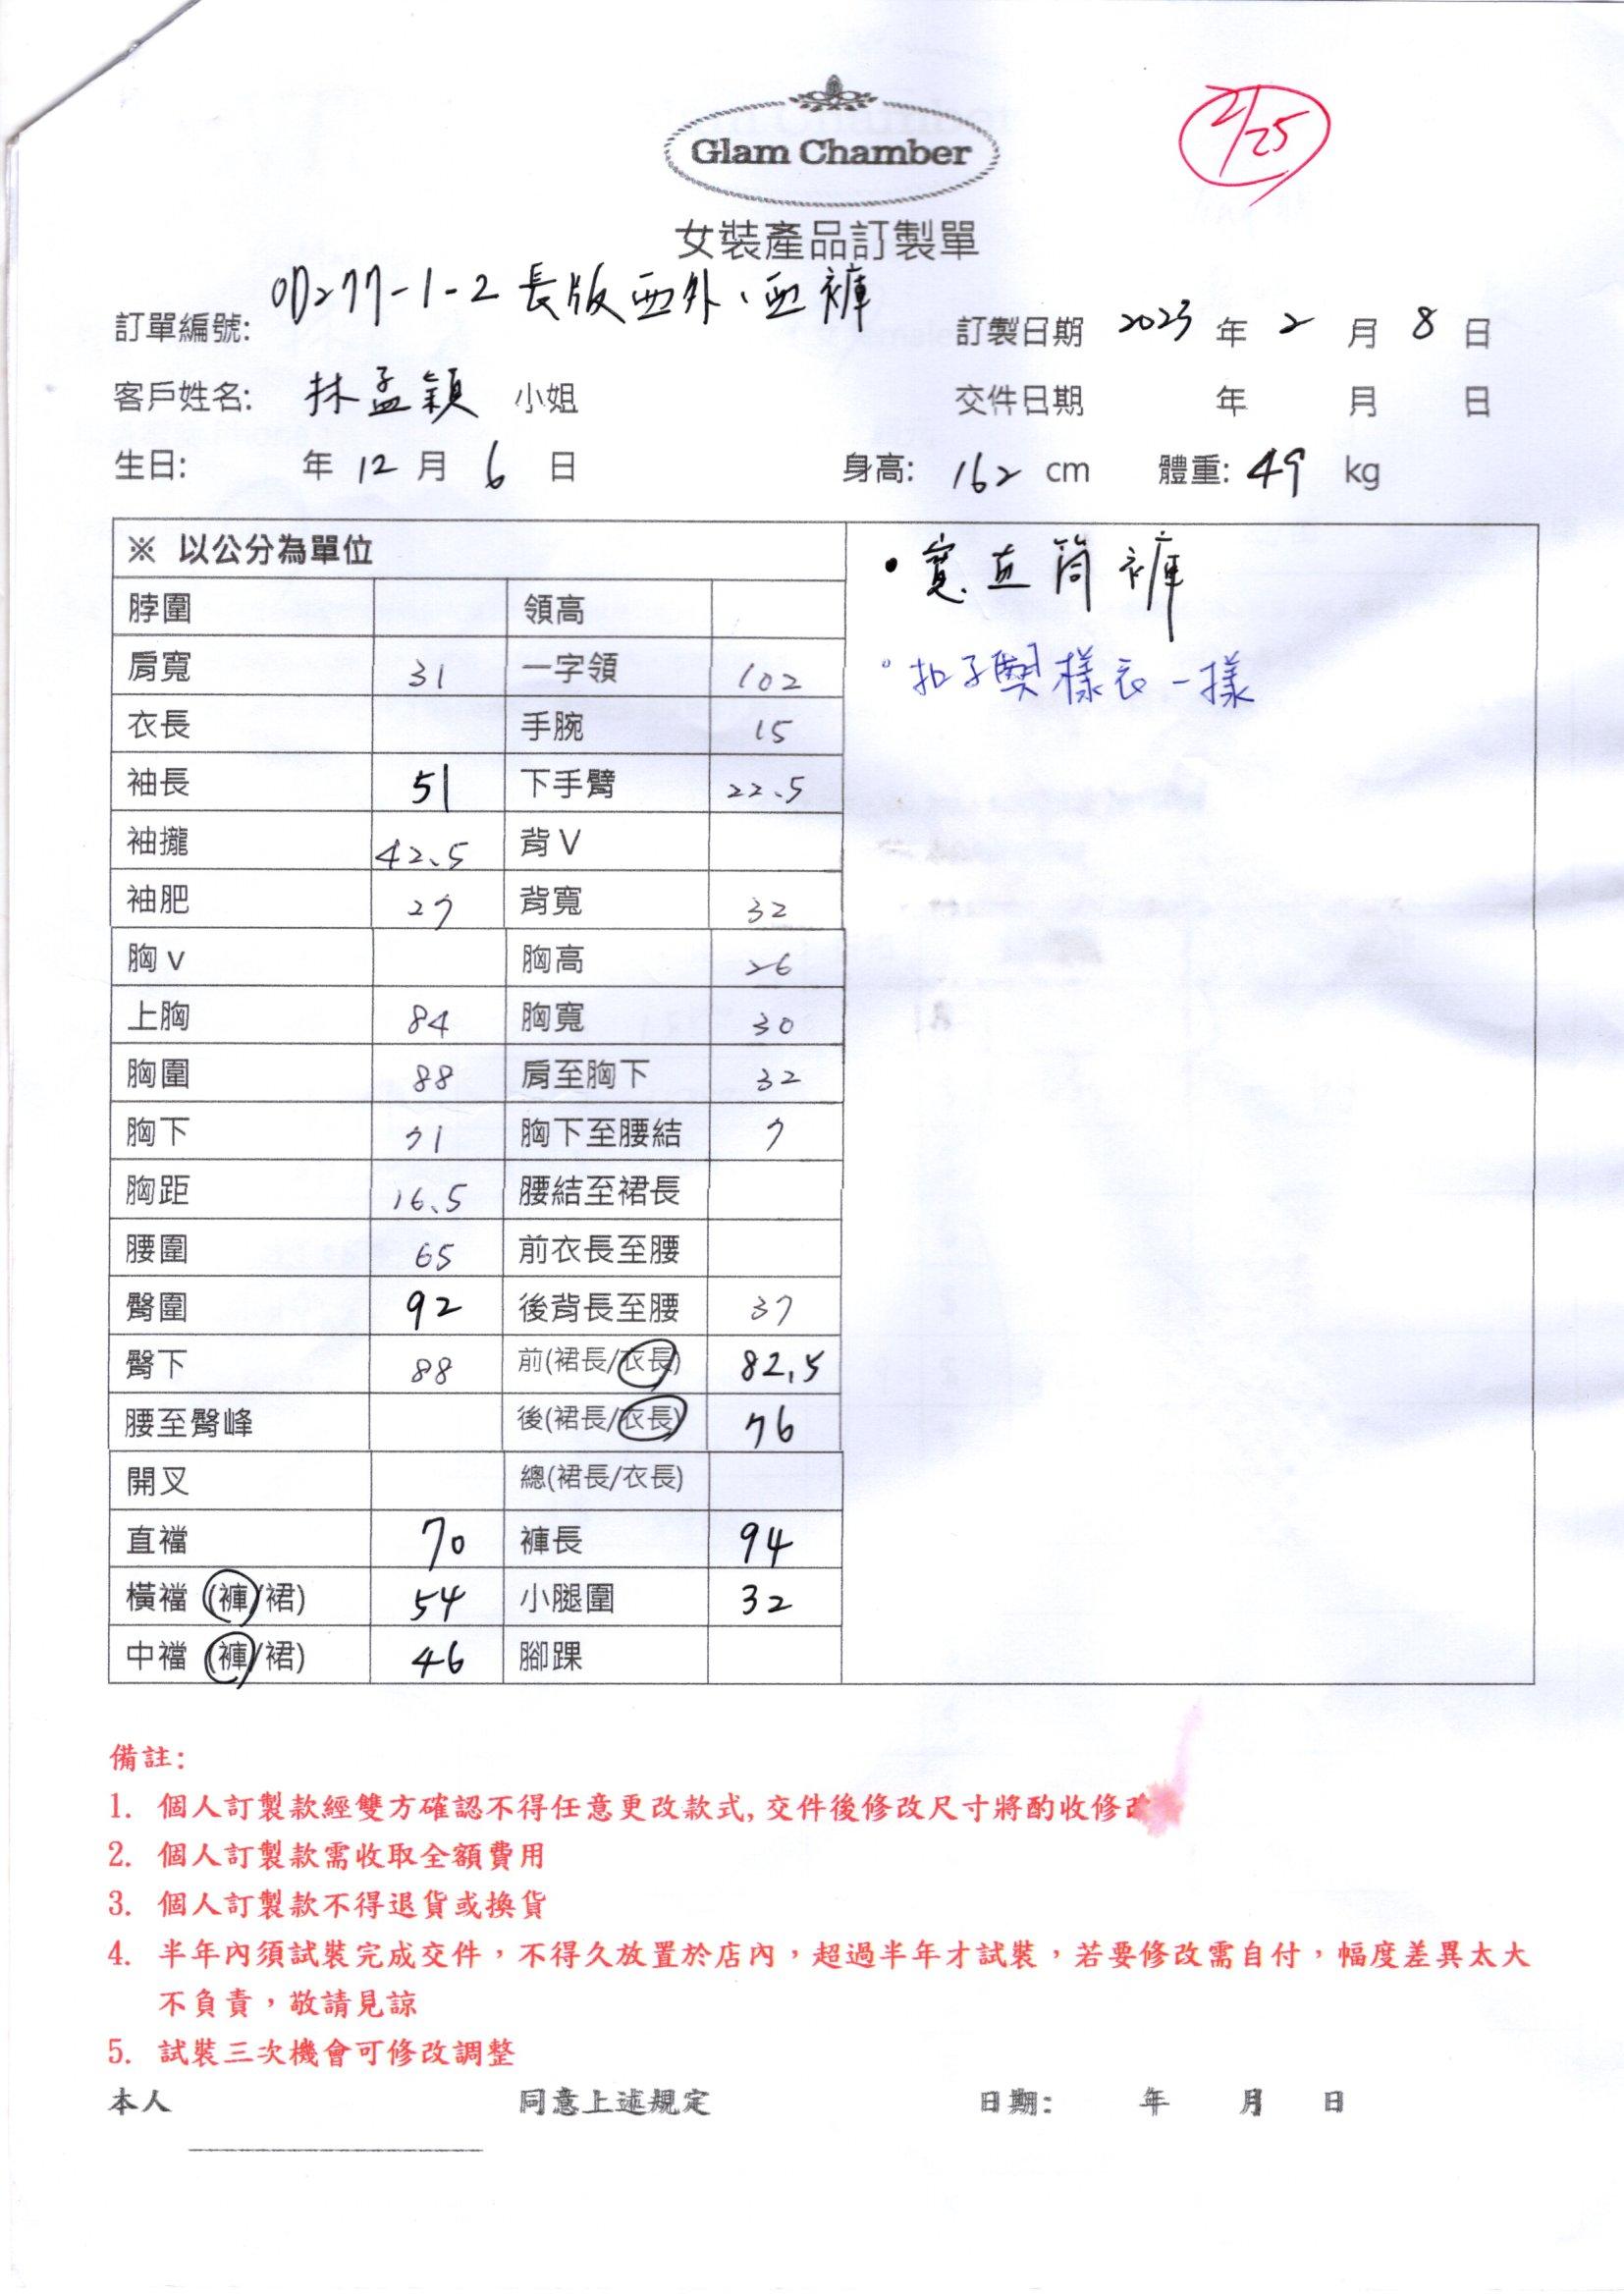 Glam Chamber
2/25
女裝產品訂製單
訂單編號: 07277-1-2 長版西外、西褲 訂製日期 2023 年 2 月 8 日
客戶姓名: 林孟穎 小姐 交件日期 年 月 日
生日: 年 12 月 6 日 身高: 162 cm 體重: 49 kg
※ 以公分為單位
脖圍 領高
肩寬 31 一字領 102
衣長 手腕 15
袖長 51 下手臂 22.5
袖攏 42.5 背V
袖肥 27 背寬 32
胸v 胸高 26
上胸 84 胸寬 30
胸圍 88 肩至胸下 32
胸下 71 胸下至腰結 7
胸距 16.5 腰結至裙長
腰圍 65 前衣長至腰
臀圍 92 後背長至腰 37
臀下 88 前(裙長/衣長) 82.5
腰至臀峰 後(裙長/衣長) 76
開叉 總(裙長/衣長)
直襠 70 褲長 94
橫襠 (褲/裙) 54 小腿圍 32
中襠 (褲/裙) 46 腳踝
• 寬直筒褲
。扣子與樣衣一樣
備註:
1. 個人訂製款經雙方確認不得任意更改款式,交件後修改尺寸將酌收修改
2. 個人訂製款需收取全額費用
3. 個人訂製款不得退貨或換貨
4. 半年內須試裝完成交件，不得久放置於店內，超過半年才試裝，若要修改需自付，幅度差異太大
不負責，敬請見諒
5. 試裝三次機會可修改調整
本人 同意上述規定 日期: 年 月 日